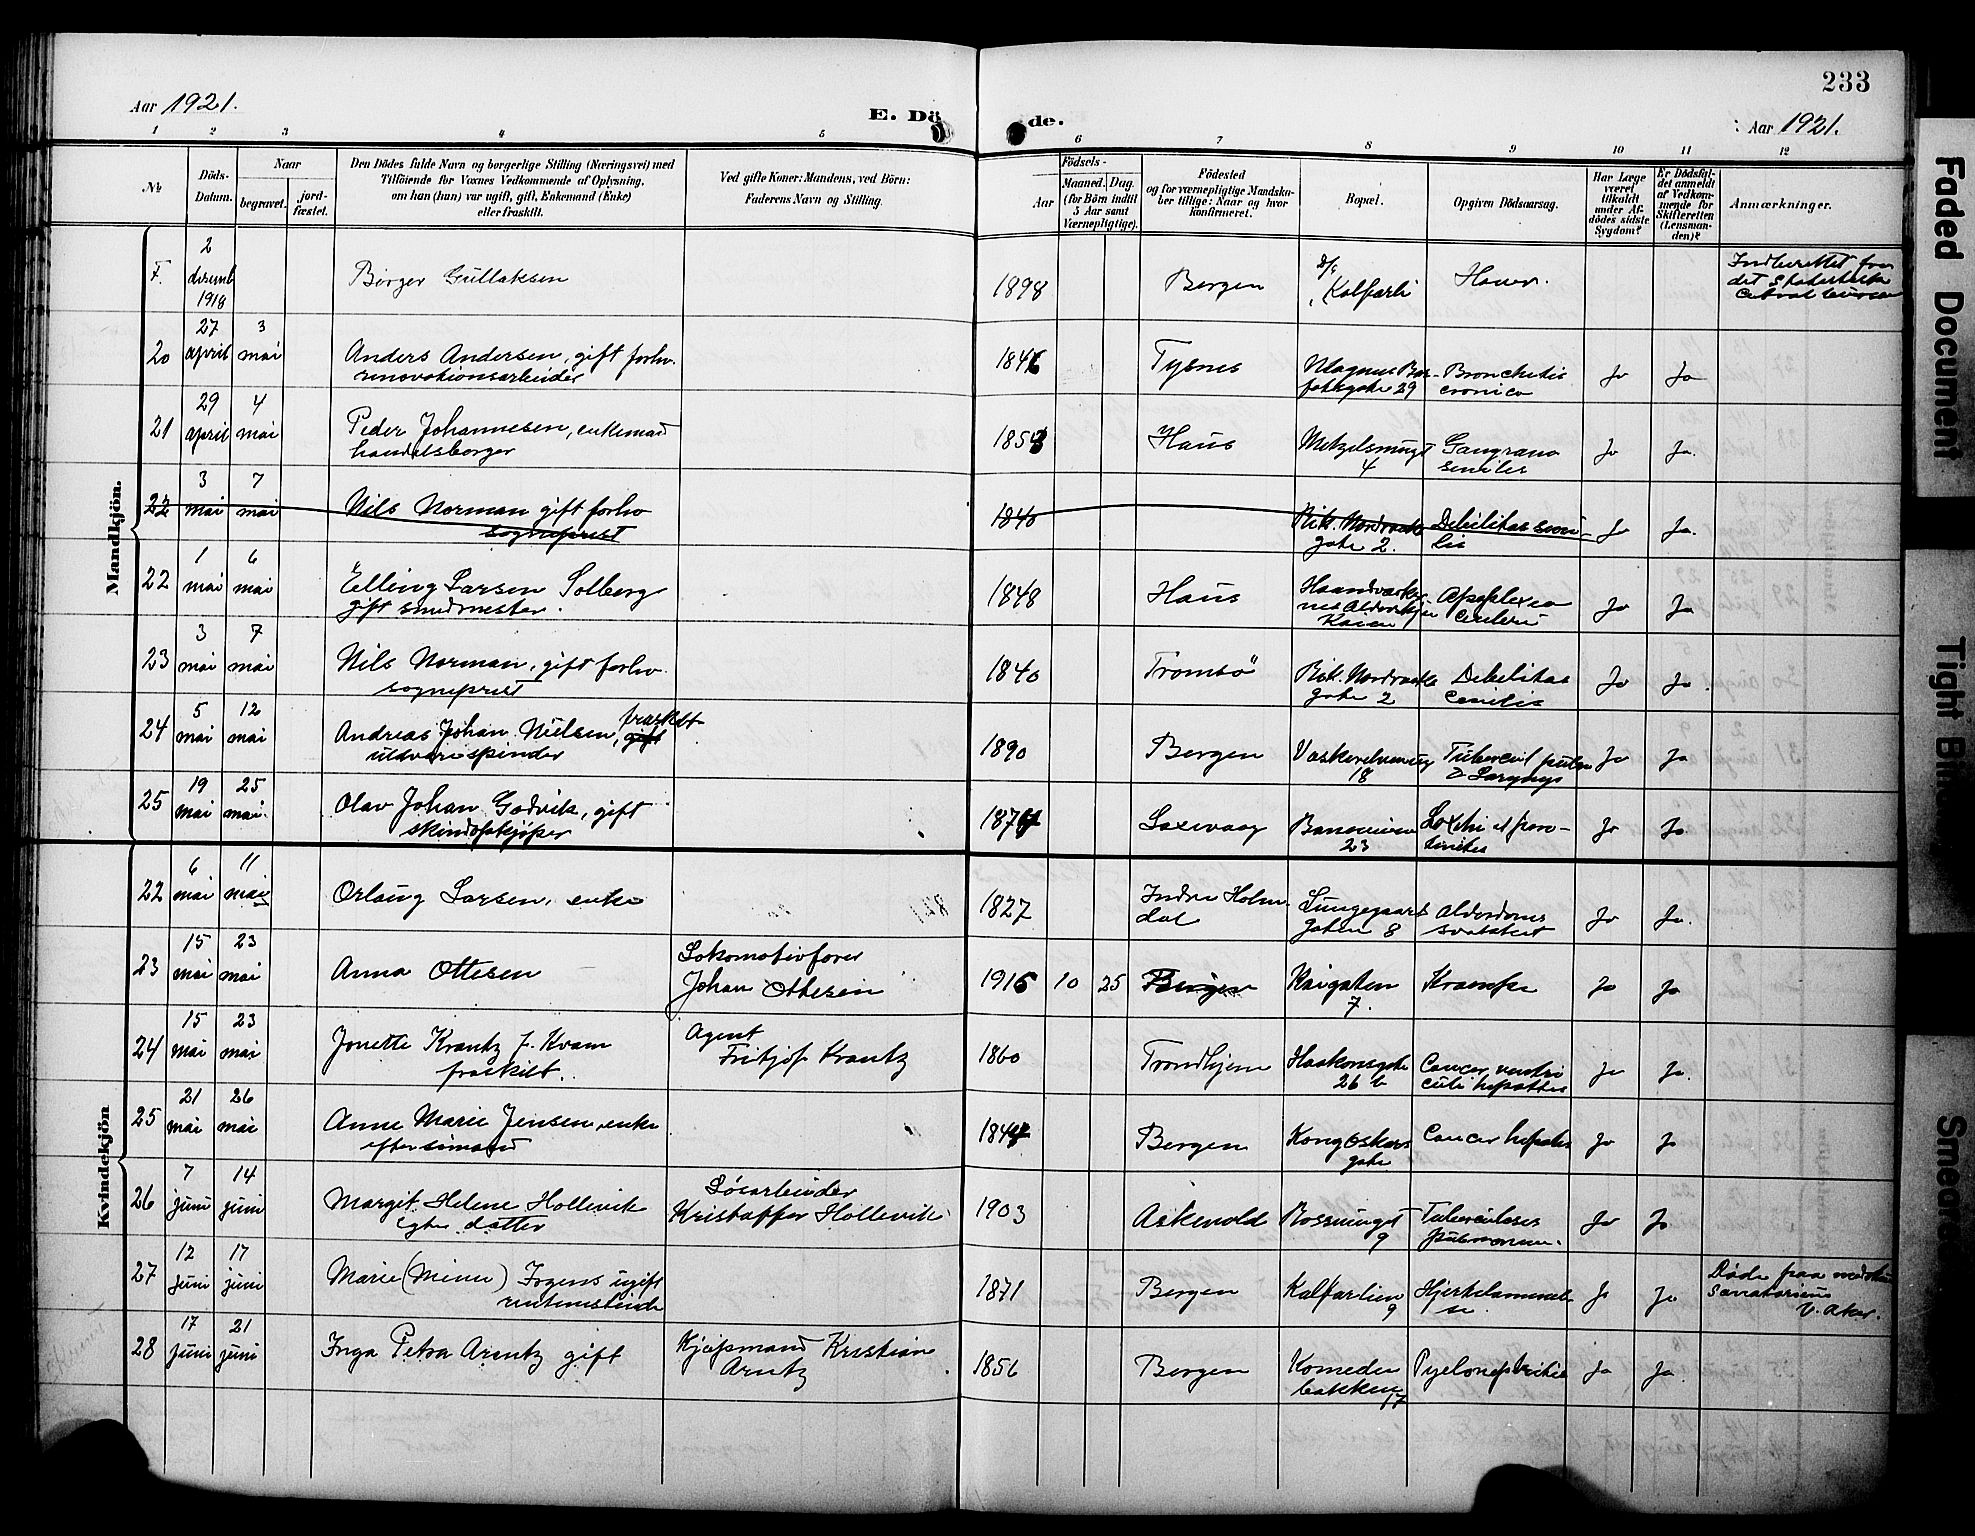 233
Aar 1921.
E. Dö de.
Aar 1921.
1 2 3 4 5 6 7 8 9 10 11 12
№
Döds-
Datum.
Naar
begravet.
jord-
fæstet.
Den Dödes fulde Navn og borgerlige Stilling (Næringsvei) med
Tilföiende for Voxnes Vedkommende af Oplysning,
om han (hun) var ugift, gift, Enkemand (Enke)
eller fraskilt.
Ved gifte Koner: Mandens, ved Börn:
Faderens Navn og Stilling.
Födsels-
Aar
Maaned. Dag.
(for Börn indtil
5 Aar samt
Værnepligtige).
Födested
og for værnepligtige Mandska-
ber tillige: Naar og hvor
konfirmeret.
Bopæl.
Opgiven Dödsaarsag.
Har Læge
været
tilkaldt
under Af-
dödes sidste
Sygdom?
Er Dödsfal-
det anmeldt
af Vedkom-
mende for
Skifteretten
(Lensman-
den)?
Anmærkninger.
Mandkjön.
F. 2 desemb 1918 Birger Gullaksen 1898 Bergen Kalfarli Indberettet fra
det Statistiske
20 27 april 3 mai Anders Andersen, gift forhv.
renovationsarbeider 1846 Tysnes Magnus Bar-
fotsgate 29 Bronchitis
cronica Ja Ja
21 29 april 4 mai Peder Johannesen, enkemand
handelsborger 1853 Haus 4 Gangræna
senilis Ja Ja.
22 3 mai 7 mai Nils Norman gift forhv
sogneprest 1840 Rik. Nordraaks
gate 2. Debilitas seni-
lis Ja Ja.
22 1 mai 6 mai Elling Larsen Solberg
gift smedmester. 1848 Haus Apoplexia
Ja Ja
23 3 mai 7 mai Nils Norman, gift forhv.
sogneprest 1840 Tromsö Rik. Nordraaks
gate 2 Debilitas
senilis Ja Ja.
24 5 mai 12 mai Andreas Johan Nielsen, gift fraskilt
uldvarespinder 1890 Bergen 18 Tubercul pulm
& Laryngs Ja Ja
25 19 mai 25 mai. Olav Johan Godvik, gift
skindopkjøper 1874 Laxevaag 23 Ja Ja
Kvindekjön
22 6 mai 11 mai Orlaug Larsen, enke 1827 Indre Holme-
dal Lungegaards
gaten 8 Alderdoms
svakhet Ja Ja.
23 15 mai 23 mai Anna Ottesen Lokomotivfører
Johan Ottesen 1916 10 25 Bergen 7. Krampe Ja Ja
24 15 mai 23 mai Jonette Krantz f. Kvam
fraskilt. Agent
Fritjof Krantz 1860 Trondhjem Haakonsgate
26 b Cancer ventri
culi hepatis Ja Ja.
25 21 mai 26 mai Anne Marie Jensen, enke
efter sömand 1844 Bergen Kong Oskars
gate Cancer hepatis Ja Ja
26 7 juni 14 juni Margit Helene Hollevik
Egte datter Løsarbeider
Kristoffer Hollevik 1903 Askevold 9 Tuberculosis
pulmonum. Ja Ja
27 12 juni 17 juni Marie (Minni) Irgens ugift 1871 Bergen Kalfarlien
9 Hjertelammel-
se. Ja Ja Døde paa
sanatorium
V. Aker.
28 17 juni 21 juni Inga Petra Arentz gift Kjøpmand Kristian
Arntz 1856 Bergen Komedie
bakken
17 Pyelonephritis Ja Ja.
Faded Document
Tight Bin
Smeared